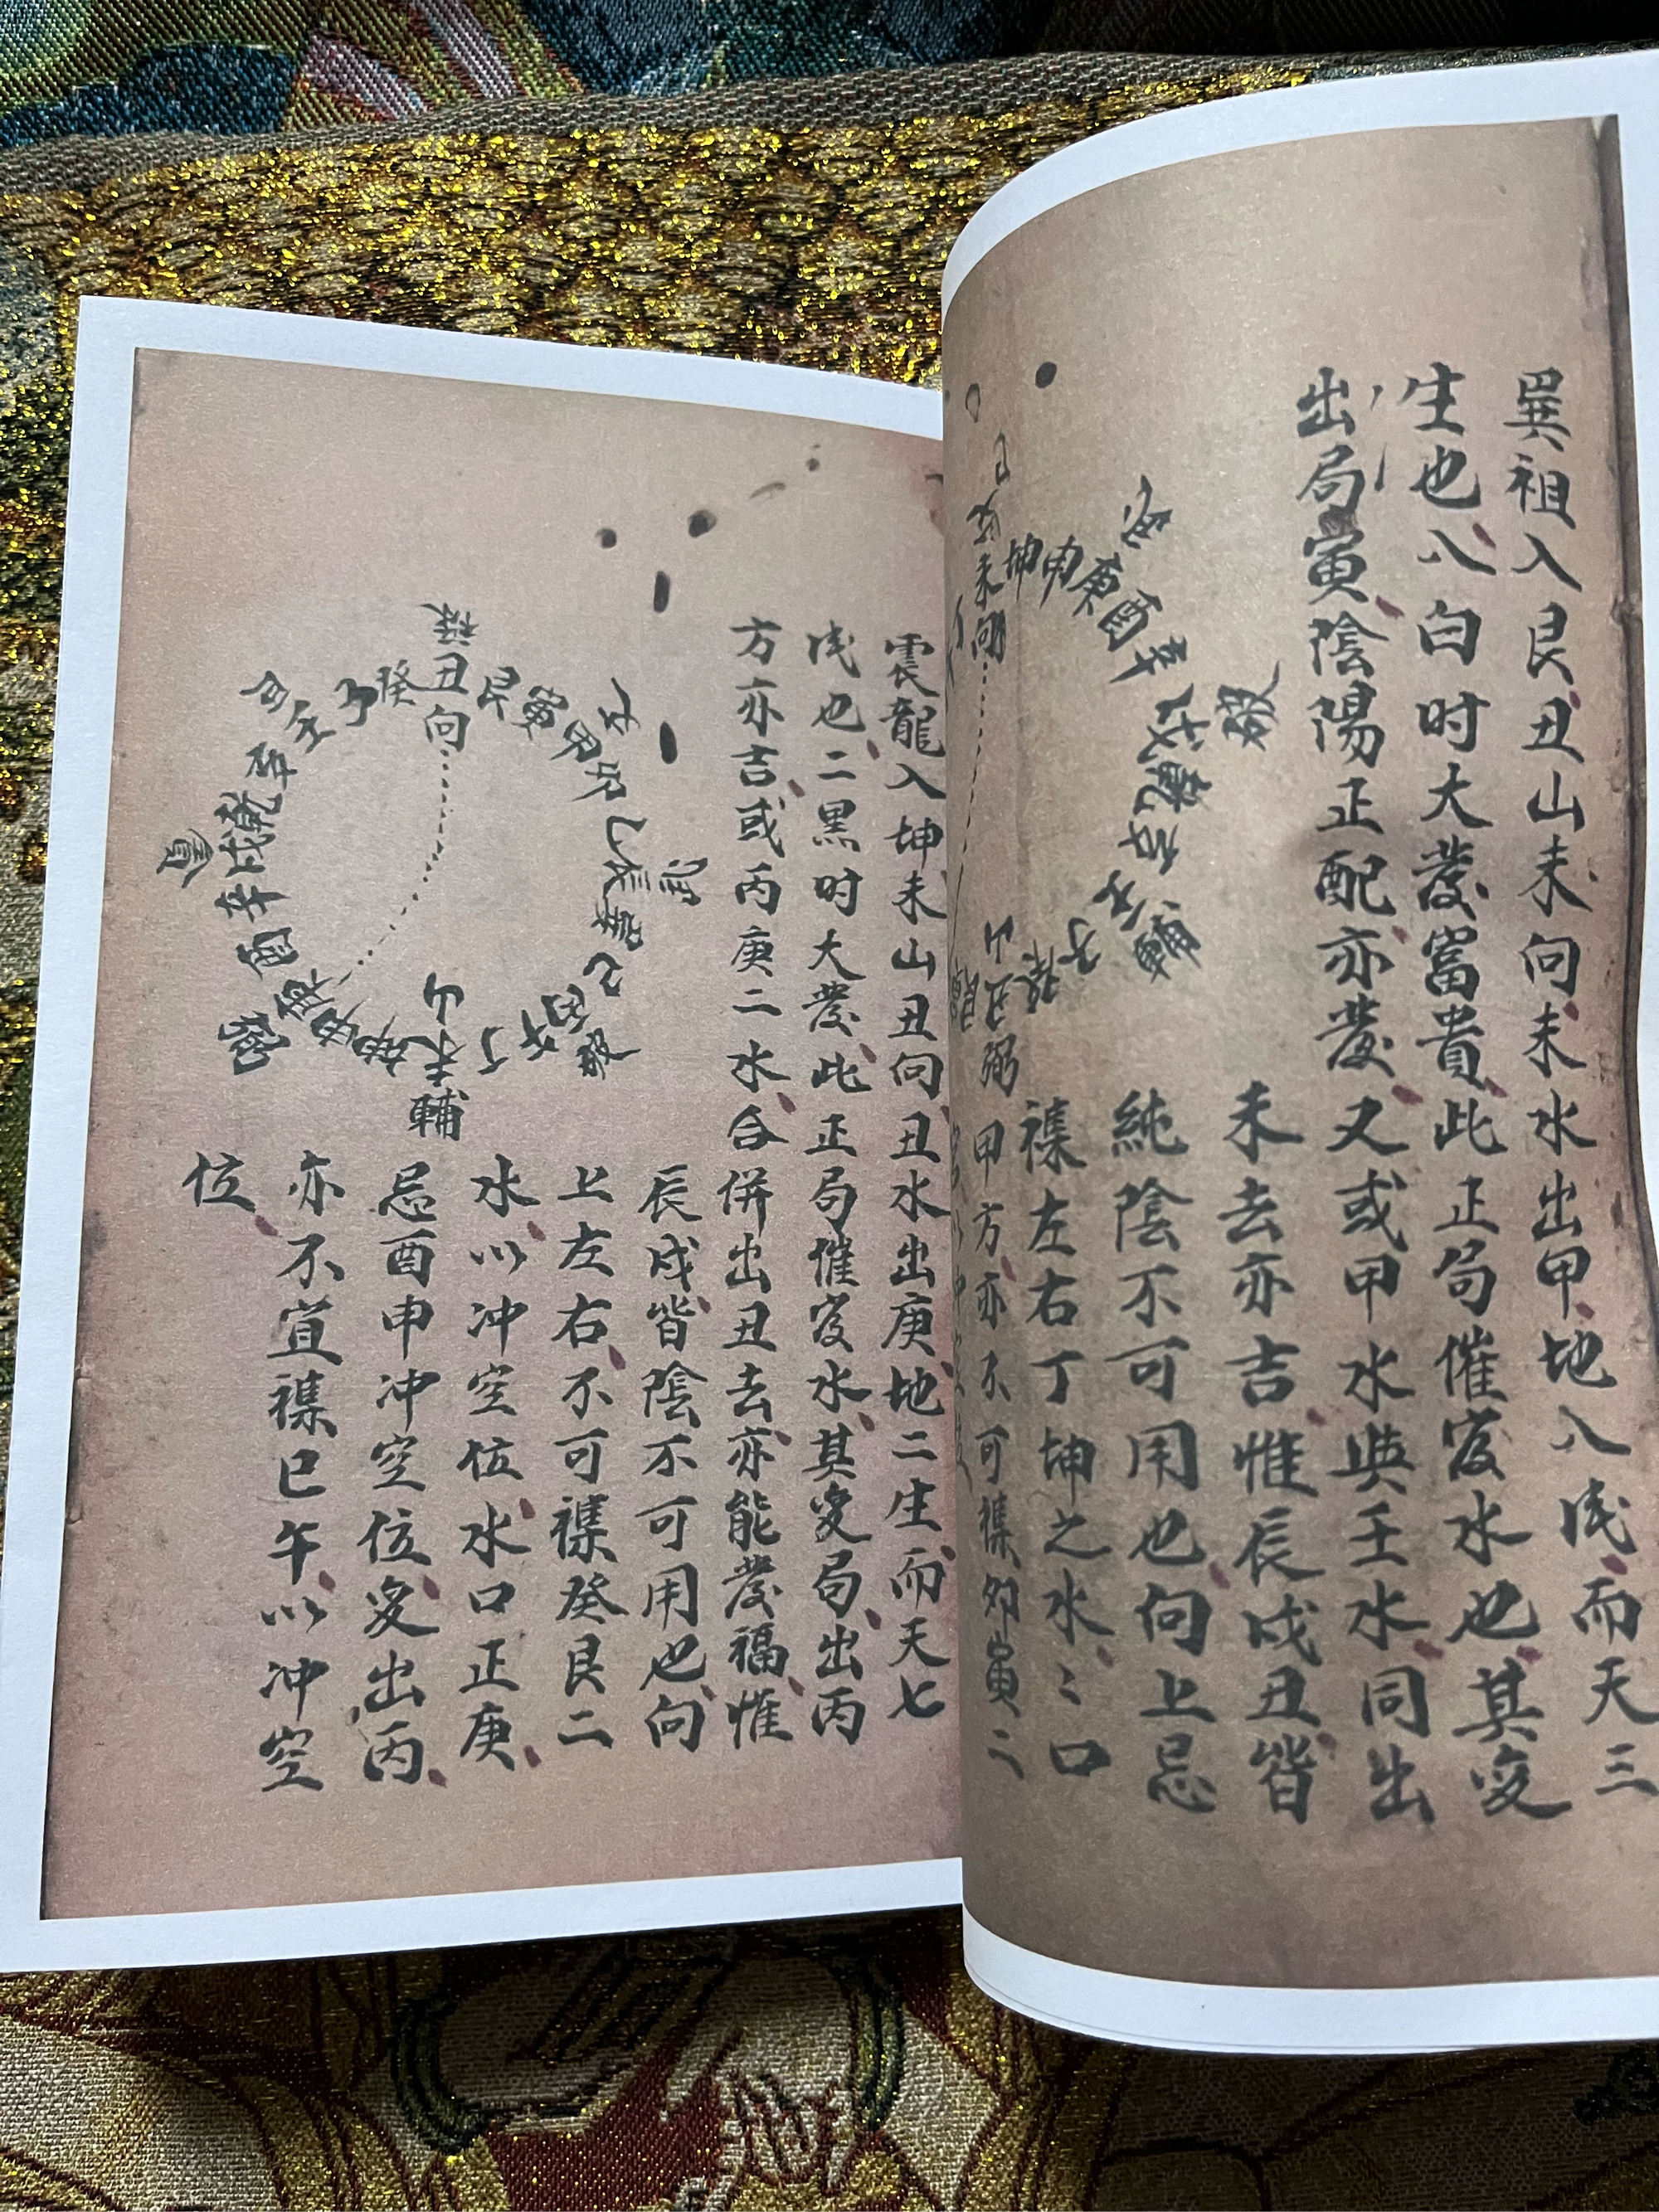 巽祖入艮丑山未向未水出甲地八浅而天三
生也八白时大發富貴此正局催官水也其变
出局寅陰陽正配亦發又或甲水與壬水同出
未去亦吉惟辰戌丑皆
純陰不可用也向上忌
襍左右丁坤之水〻口
甲方亦不可襍卯寅二
未坤申庚酉辛戌乾亥壬子癸丑艮
向
山
破
輔
弼
震龍入坤未山丑向丑水出庚地二生而天七
浅也二黑时大發此正局催官水其变局出丙
方亦吉或丙庚二水合併出丑去亦能發福惟
辰戌皆陰不可用也向
上左右不可襍癸艮二
水以冲空位水口正庚
忌酉申冲空位变出丙
亦不宜襍巳午以冲空
位
丑艮寅甲卯乙辰巽巳丙午丁未坤申庚酉辛戌乾亥壬子癸
向
山
祿
輔